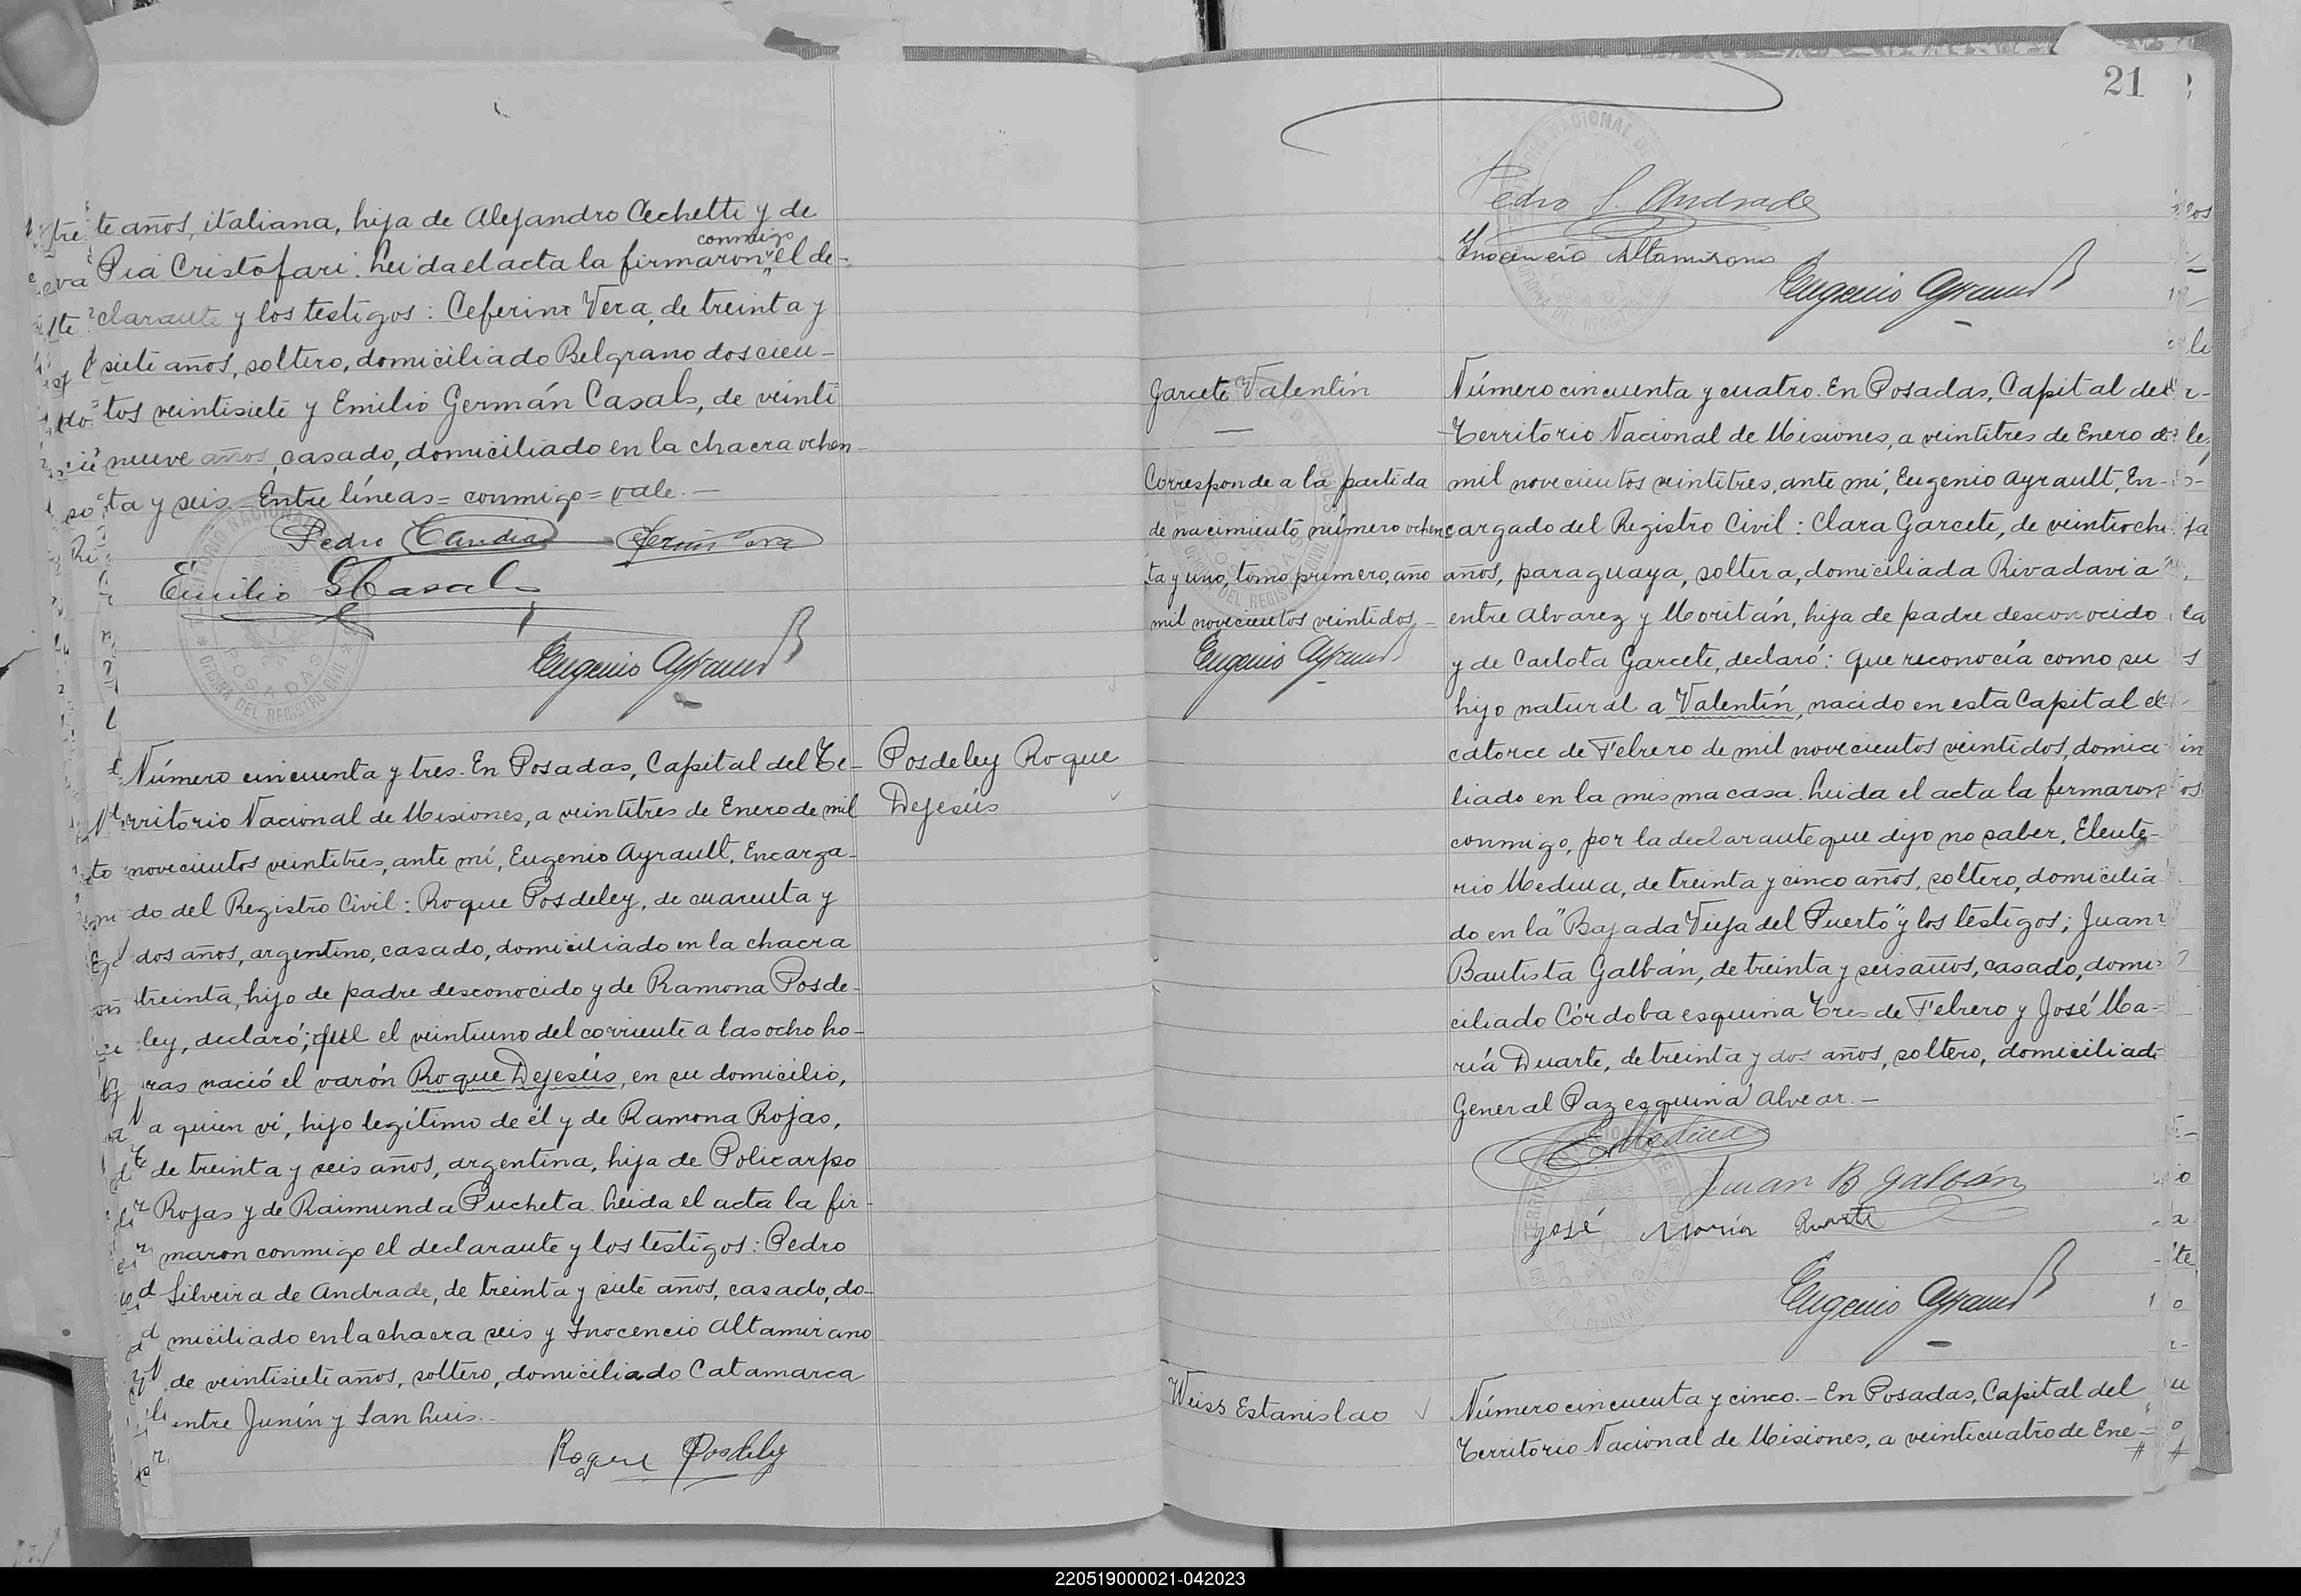 te años, italiana, hija de Alejandro Cechetti y de
Pia Cristofari. Leida el acta la firmaron conmigo el de-
clarante y los testigos: Ceferino Vera, de treinta y
siete años, soltero, domiciliado Belgrano doscien-
tos veintisiete y Emilio Germán Casals, de veinti
nueve años, casado, domiciliado en la chacra ochen-
ta y seis. Entre líneas = conmigo = vale.—
Pedro Candia
Emilio G Casals
Eugenio Ayrault
Posdeley Roque
Dejesús
Número cincuenta y tres. En Posadas, Capital del Te-
rritorio Nacional de Misiones, a veintitres de Enero de mil
novecientos veintitres, ante mí, Eugenio Ayrault, Encarga-
do del Registro Civil: Roque Posdeley, de cuarenta y
dos años, argentino, casado, domiciliado en la chacra
treinta, hijo de padre desconocido y de Ramona Posde-
ley, declaró; que el veintiuno del corriente a las ocho ho-
ras nació el varón Roque Dejesús, en su domicilio,
a quien ví, hijo legítimo de él y de Ramona Rojas,
de treinta y seis años, argentina, hija de Policarpo
Rojas y de Raimunda Pucheta. Leida el acta la fir-
maron conmigo el declarante y los testigos: Pedro
Silveira de Andrade, de treinta y siete años, casado, do-
miciliado en la chacra seis y Inocencio Altamirano
de veintisiete años, soltero, domiciliado Catamarca
entre Junín y San Luis.-
Roque Posdeley
21
Pedro S. Andrade
Inocencio Altamirano
Eugenio Ayrault
Garcete Valentín
Corresponde a la partida
de nacimiento número ochen
ta y uno, tomo primero, año
mil novecientos veintidos.—
Eugenio Ayrault
Número cincuenta y cuatro. En Posadas, Capital del
Territorio Nacional de Misiones, a veintitres de Enero de
mil novecientos veintitres, ante mí, Eugenio Ayrault, En-
cargado del Registro Civil: Clara Garcete, de veintiocho
años, paraguaya, soltera, domiciliada Rivadavia
entre Alvarez y Moritán, hija de padre desconocido
y de Carlota Garcete, declaró: que reconocía como su
hijo natural a Valentín, nacido en esta Capital el
catorce de Febrero de mil novecientos veintidos, domici-
liado en la misma casa. Leida el acta la firmaron
conmigo, por la declarante que dijo no saber, Eleute-
rio Medina, de treinta y cinco años, soltero, domicilia
do en la "Bajada Vieja del Puerto" y los testigos; Juan
Bautista Galbán, de treinta y seis años, casado, domi-
ciliado Córdoba esquina Tres de Febrero y José Ma-
ría Duarte, de treinta y dos años, soltero, domiciliado
General Paz esquina Alvear.—
E Medina
Juan B Galbán
José María Duarte
Eugenio Ayrault
Weiss Estanislao
Número cincuenta y cinco.— En Posadas, Capital del
Territorio Nacional de Misiones, a veinticuatro de Ene-
220519000021-042023